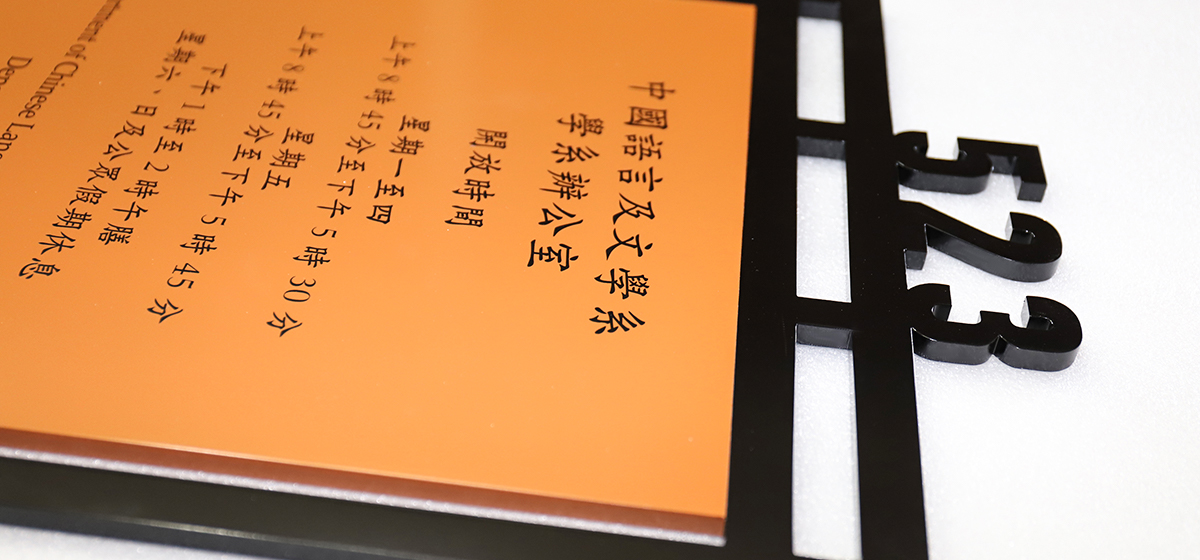 523
中國語言及文學系
學系辦公室
開放時間
星期一至四
上午 8 時 45 分至下午 5 時 30 分
星期五
上午 8 時 45 分至下午 5 時 45 分
下午 1 時至 2 時午膳
星期六、日及公眾假期休息
of Chinese